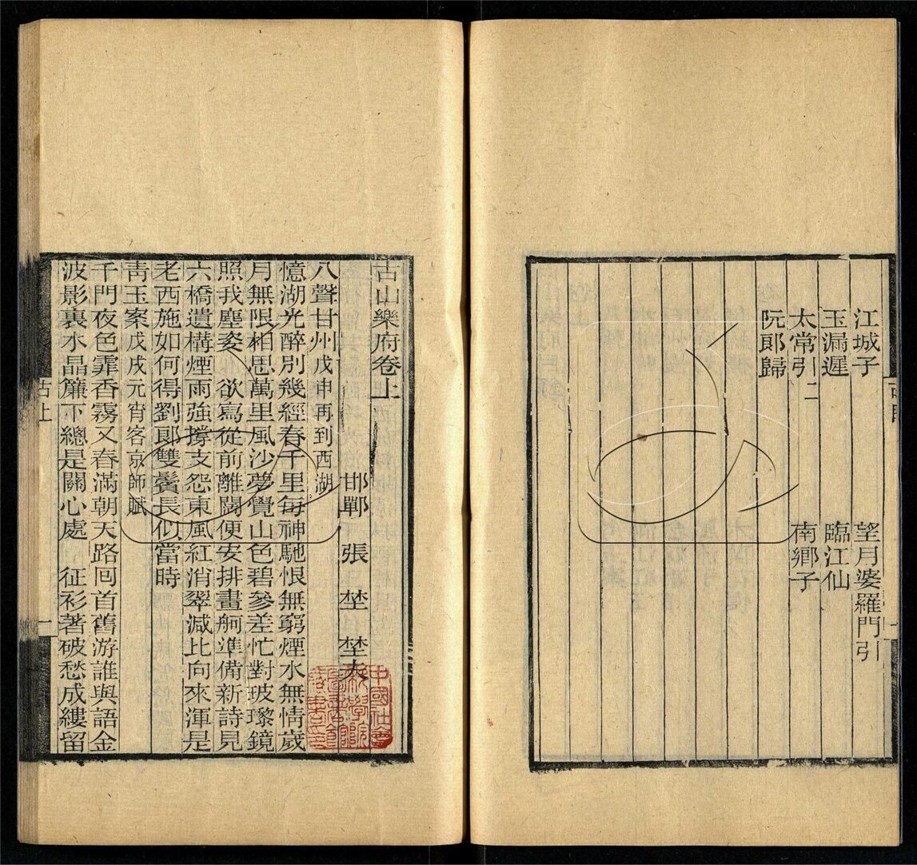 江城子　望月婆羅門引
玉漏遲　臨江仙
太常引二　南鄉子
阮郞歸
古山樂府卷上
邯鄲　張　埜　埜夫
八聲甘州戊申再到西湖
憶湖光醉別幾經春千里每神馳恨無窮煙水無情歲
月無限相思萬里風沙夢覺山色碧參差忙對玻瓈鏡
照我塵姿　欲寫從前離闊便安排畫舸準備新詩見
六橋遺構煙雨強撐支怨東風紅消翠減比向來渾是
老西施如何得劉郞雙鬢長似當時
靑玉案戊戌元宵客京師賦
千門夜色霏香霧又春滿朝天路囘首舊游誰與語金
波影裏水晶簾下總是關心處　征衫著破愁成縷留
古上
一